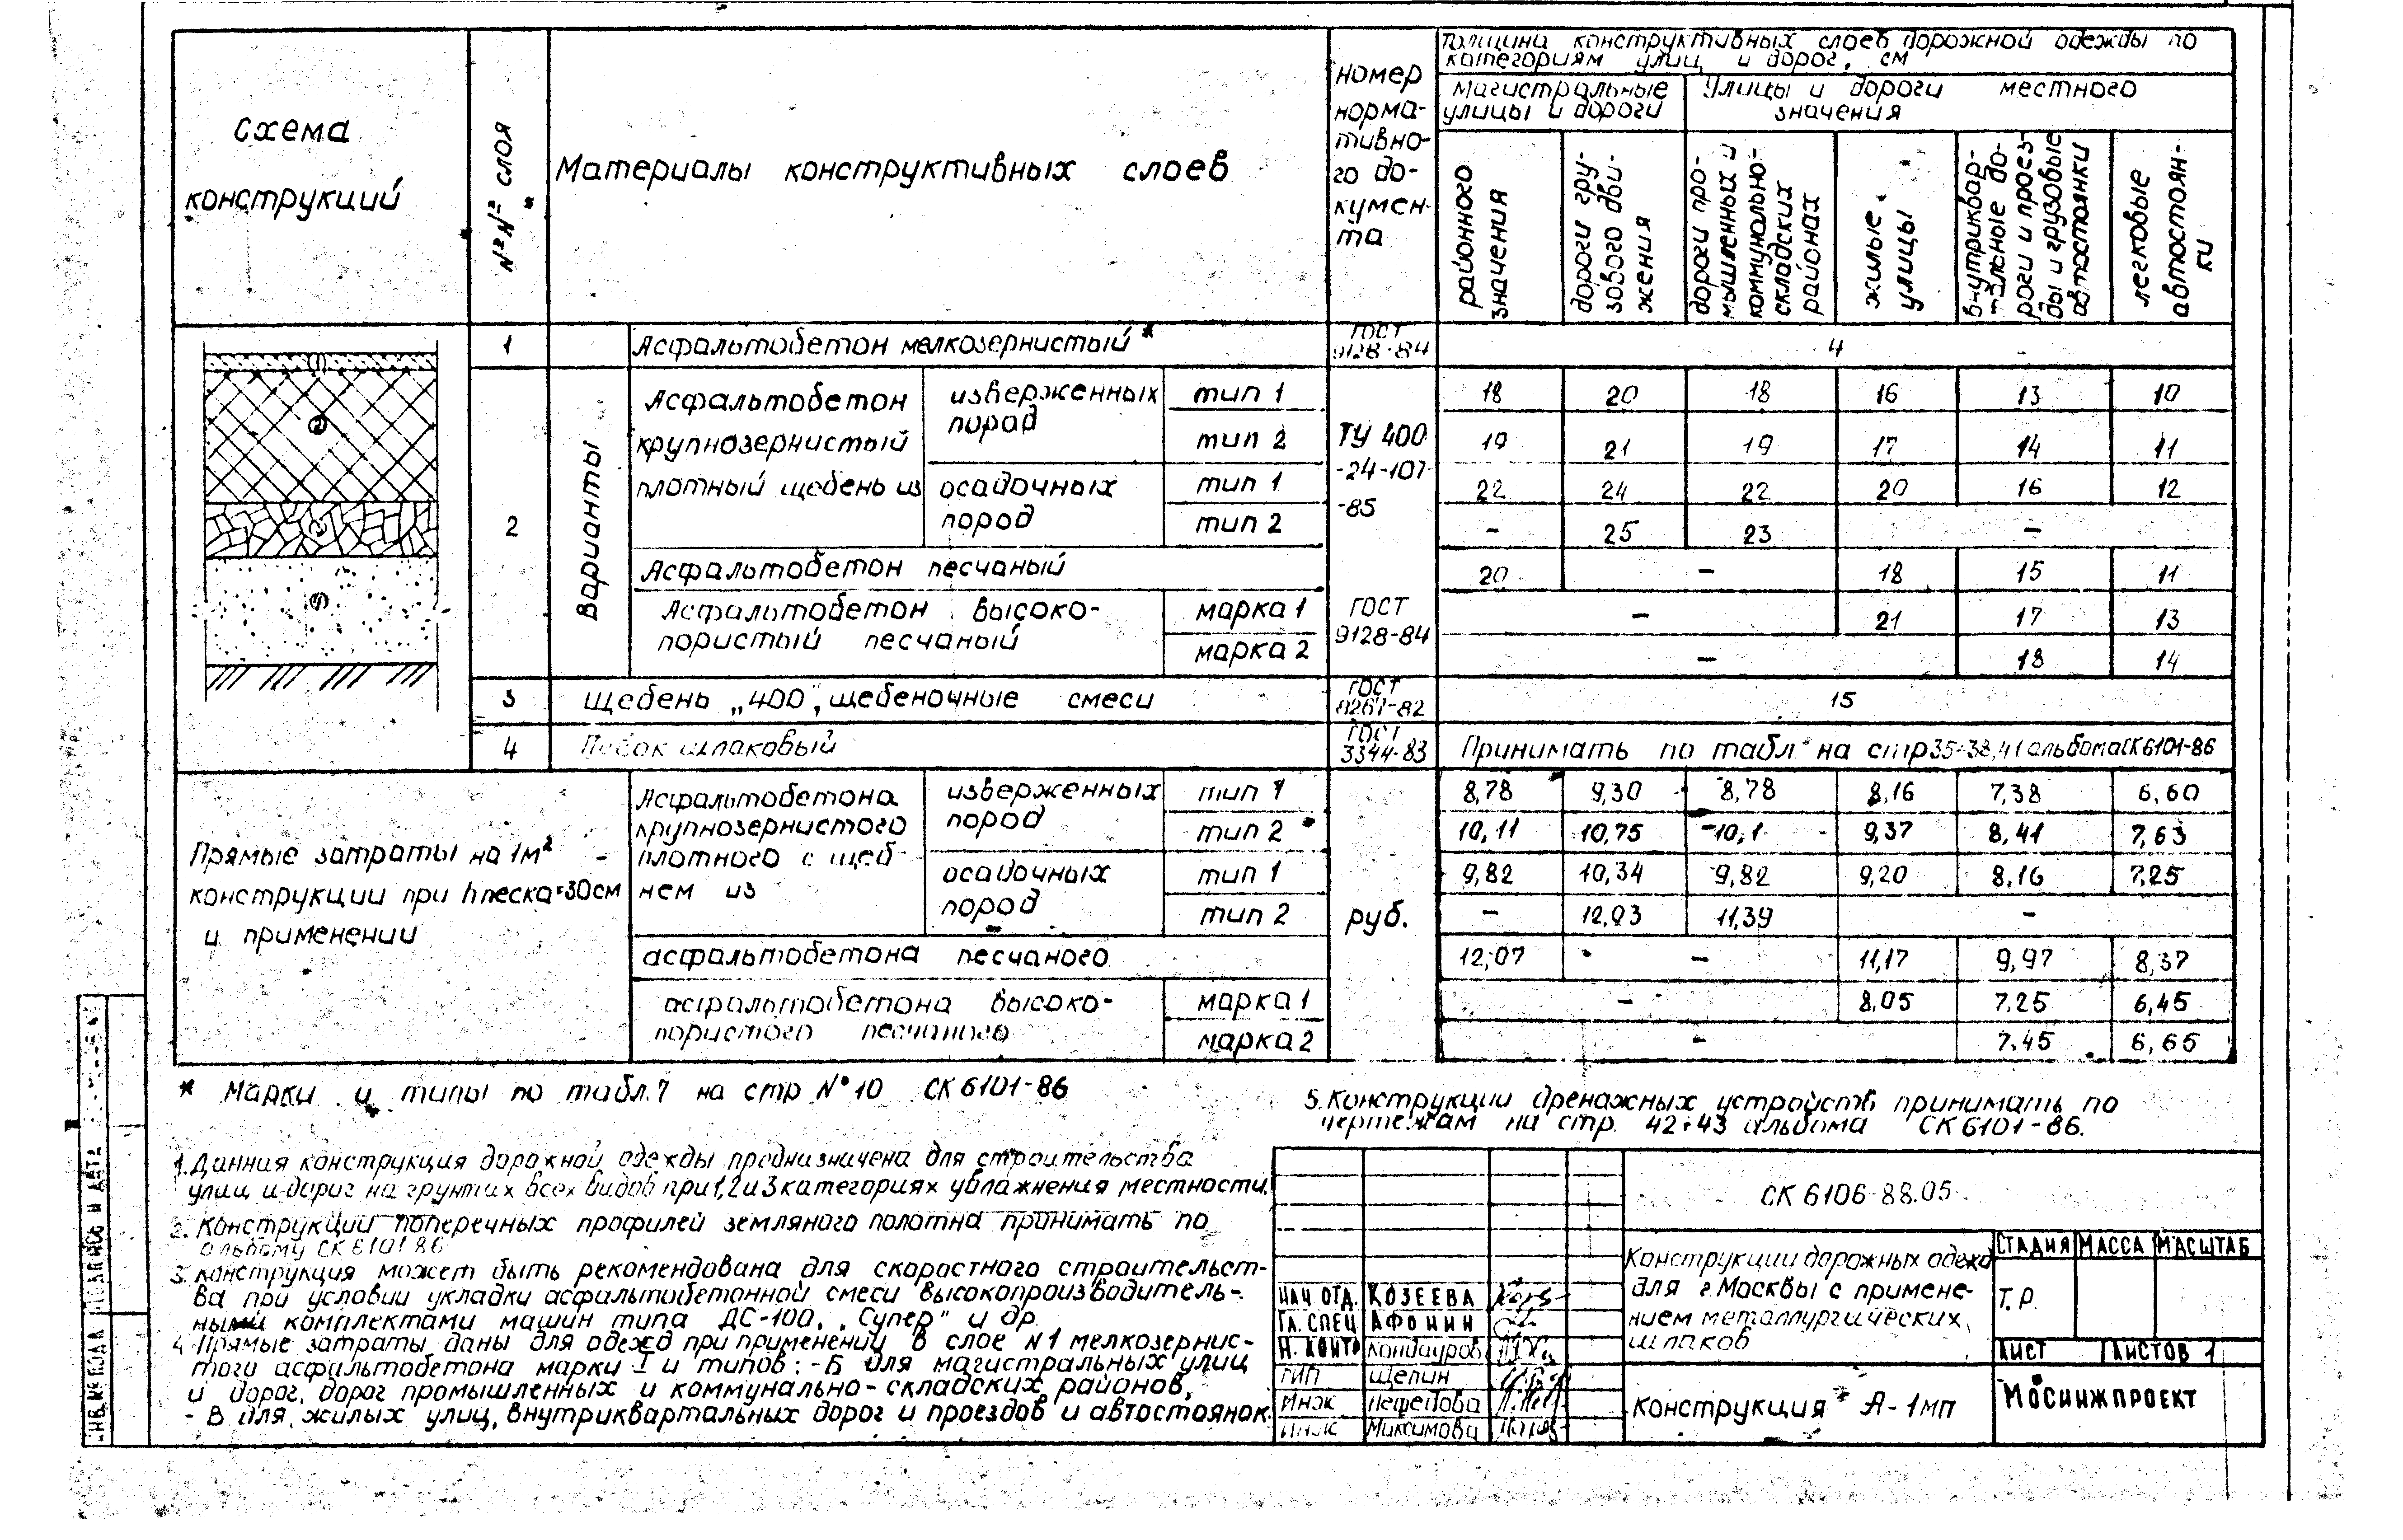 схема
конструкций
№№ слоя
Материалы конструктивных слоев
номер
норма-
тивно-
го до-
кумен-
та
Толщина конструктивных слоев дорожной одежды по
категориям улиц и дорог, см
магистральные
улицы и дороги
Улицы и дороги местного
значения
районного
значения
дороги гру-
зового дви-
жения
дороги про-
мышленных и
коммунально-
складских
районах
жилые
улицы
внутриквар-
тальные до-
роги и проез-
ды и грузовые
автостоянки
легковые
автостоян-
ки
1 Асфальтобетон мелкозернистый* ГОСТ 4
9128-84
2
Варианты
Асфальтобетон
крупнозернистый
плотный щебень из
изверженных
пород
тип 1 18 20 18 16 13 10
тип 2 19 21 19 17 14 11
осадочных
пород
тип 1 22 24 22 20 16 12
тип 2 - 25 23 -
ТУ 400
-24-107-
-85
Асфальтобетон песчаный 20 - 18 15 11
Асфальтобетон высоко-
пористый песчаный
марка 1 - 21 17 13
марка 2 - 18 14
ГОСТ
9128-84
3 Щебень „400", щебеночные смеси ГОСТ 15
8267-82
4 Песок шлаковый ГОСТ Принимать по табл на стр 35-38,41 альбома СК6101-86
3344-83
Прямые затраты на 1м²
конструкции при h песка=30см
и применении
Асфальтобетона
крупнозернистого
плотного с щеб-
нем из
изверженных
пород
тип 1 8,78 9,30 8,78 8,16 7,38 6,60
тип 2 10,11 10,75 10,1 9,37 8,41 7,63
осадочных
пород
тип 1 9,82 10,34 9,82 9,20 8,16 7,25
тип 2 - 12,03 11,39 -
руб.
асфальтобетона песчаного 12,07 - - 11,17 9,97 8,37
асфальтобетона высоко-
пористого песчаного
марка 1 - 8,05 7,25 6,45
марка 2 - 7,45 6,65
* Марки и типы по табл.7 на стр №10 СК 6101-86
1. Данная конструкция дорожной одежды предназначена для строительства
улиц и дорог на грунтах всех видов при 1,2 и 3 категориях увлажнения местности.
2. Конструкции поперечных профилей земляного полотна принимать по
альбому СК 6101 86
3. конструкция может быть рекомендована для скоростного строительст-
ва при условии укладки асфальтобетонной смеси высокопроизводитель-
ными комплектами машин типа ДС-100, „Супер" и др.
4. Прямые затраты даны для одежд при применении в слое №1 мелкозернис-
того асфальтобетона марки I и типов: -Б для магистральных улиц
и дорог, дорог промышленных и коммунально-складских районов,
- В для жилых улиц, внутриквартальных дорог и проездов и автостоянок.
5. Конструкции дренажных устройств принимать по
чертежам на стр. 42÷43 альбома СК 6101-86.
СК 6106-88.05
Конструкции дорожных одежд
для г. Москвы с примене-
нием металлургических
шлаков
СТАДИЯ МАССА МАСШТАБ
Т.Р.
ЛИСТ ЛИСТОВ 1
НАЧ ОТД. КОЗЕЕВА
ГЛ. СПЕЦ АФОНИН
Н. КОНТР Кондауров
ГИП Щепин
Инж Нефедова
Инж Максимова
Конструкция А-1мп
МОСИНЖПРОЕКТ
ИНВ № ПОДЛ ПОДПИСЬ И ДАТА